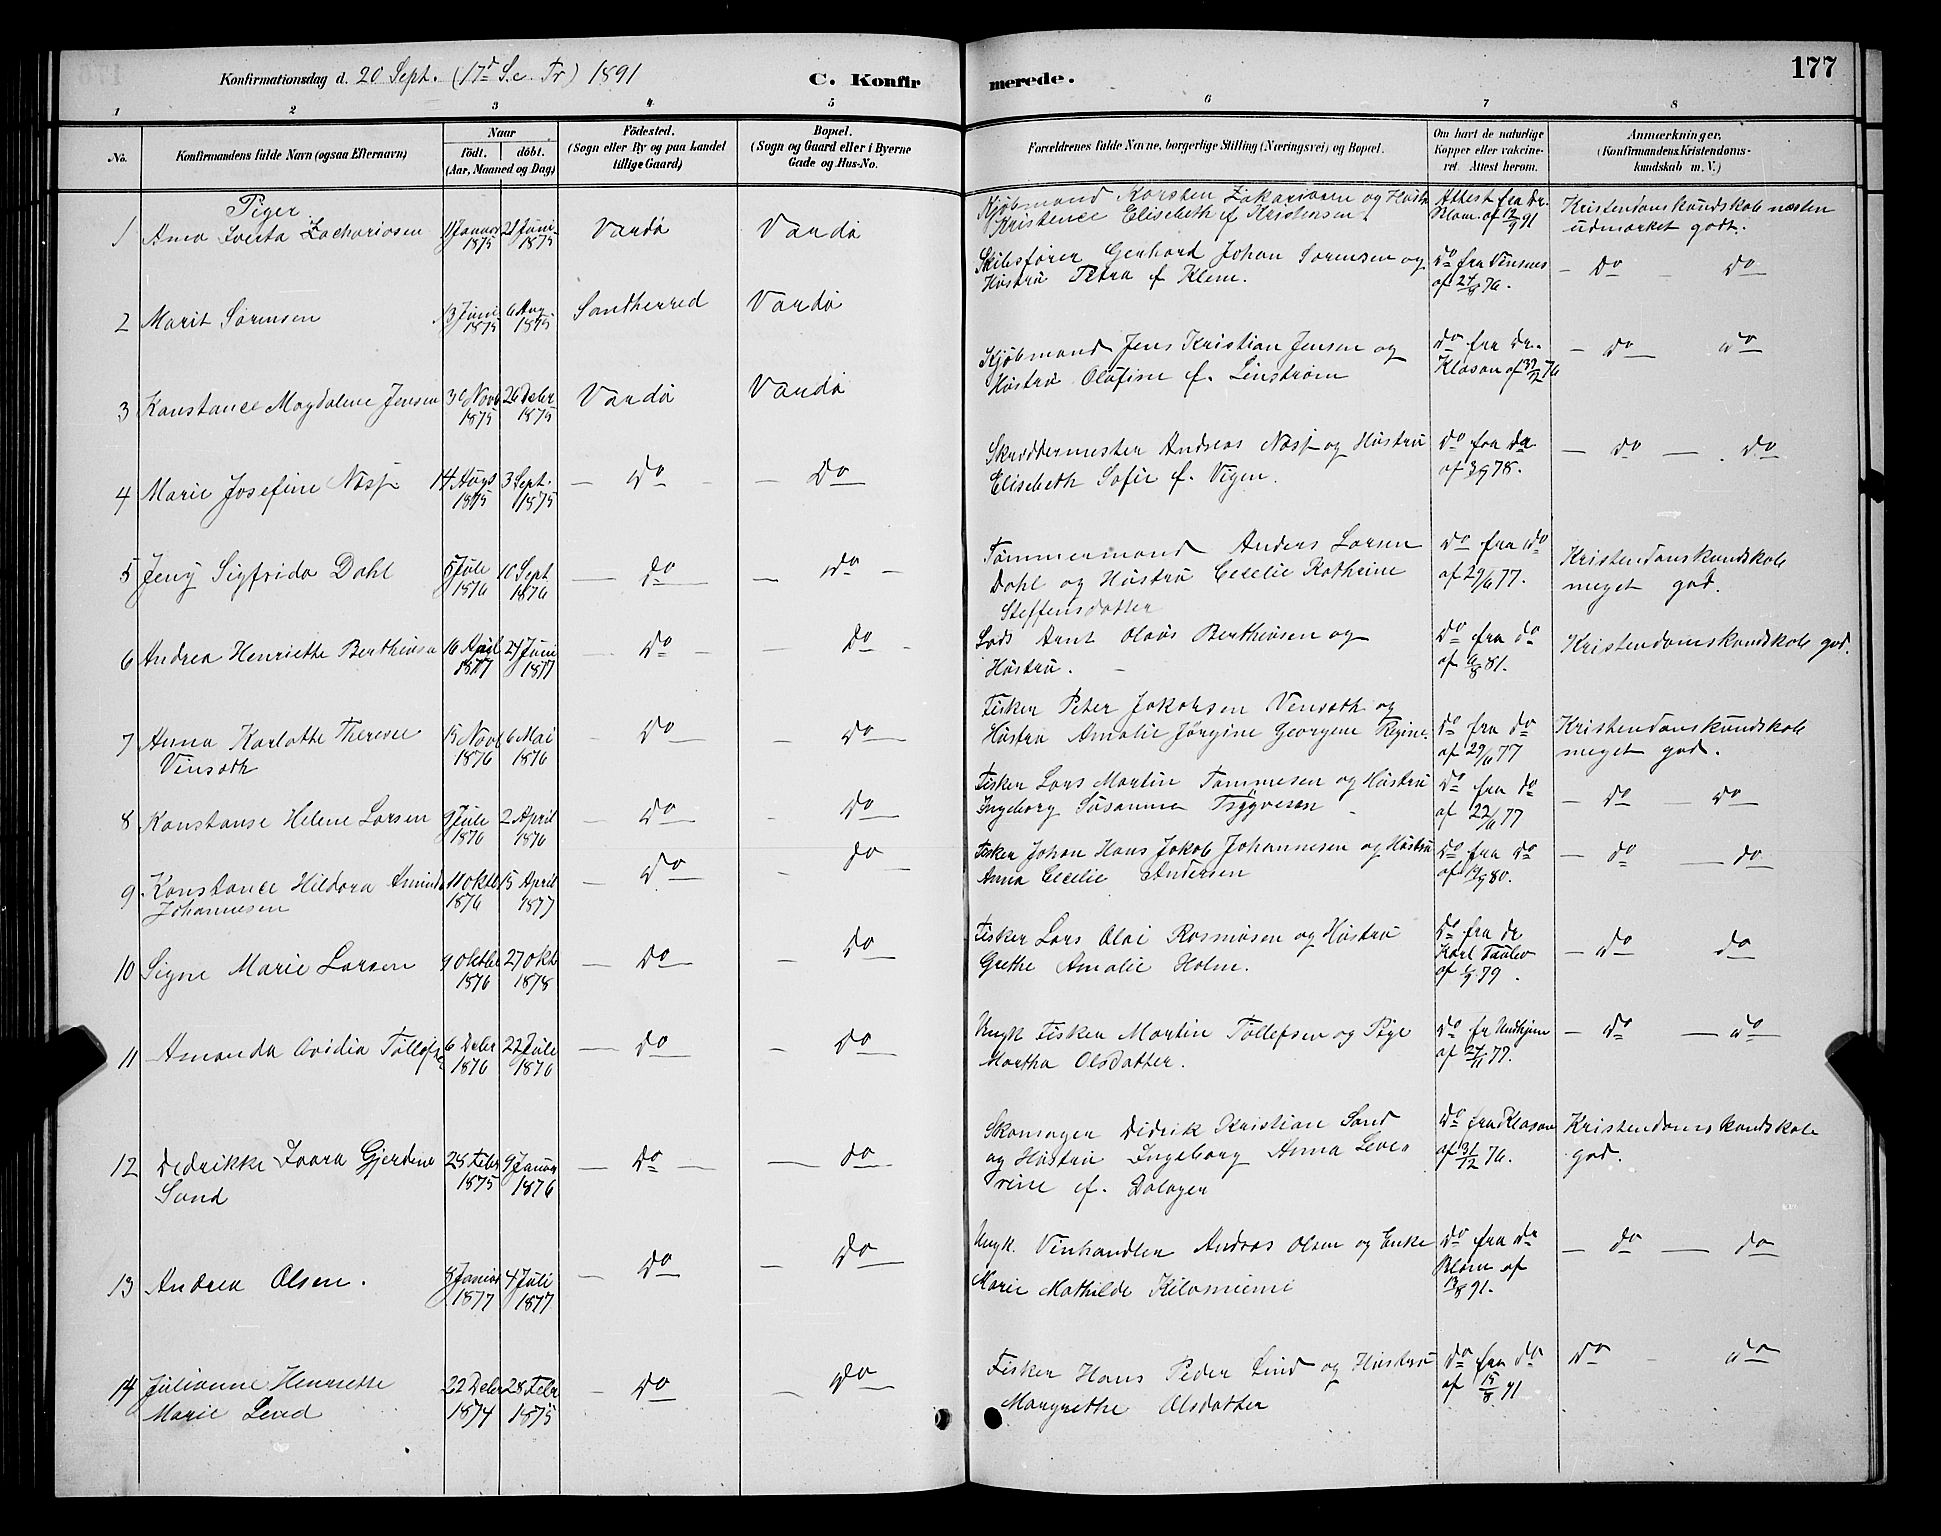 177
Konfirmationsdag d. 20 Sept. (17d S. e. Tr) 1891
C. Konfirmerede.
1 2 3 4 5 6 7 8
No.
Konfirmandens fulde Navn (ogsaa Efternavn)
Naar
født. døbt.
(Aar, Maaned og Dag)
Födested.
(Sogn eller By og paa Landet
tillige Gaard)
Bopæl.
(Sogn og Gaard eller i Byerne
Gade og Hus-No.
Forældrenes fulde Navne, borgerlige Stilling (Næringsvei) og Bopæl.
Om havt de naturlige
Kopper eller vakcine-
ret. Attest herom.
Anmærkninger.
(Konfirmandens Kristendoms-
kundskab m. V.)
Piger.
1 Anna Zachariasen Januar 1875 21 Juni 1875 Vardø Vardø
Kjøbmand Karsten Zakariasen og Hustru
Kristence Elisabeth f. Kristensen
Attest fra Dr.
Blom af 12/9 91
Kristendomskundskab næsten
udmærket godt.
2 Marit Sørensen 13 Juni 1875 6 Aug. 1875 Sandherred Vardø
Skibsfører Gerhard Johan Sørensen og
Hustru Petra f. Klem.
do fra
af 76.
— do — do
3 Konstance Magdalene Jensen 30 Novb 1875 26 Debr 1875 Vardø Vardø
Kjøbmand Jens Kristian Jensen og
Hustru Olufine f. Linstrøm
do fra Dr.
Klason af 76
— do do
4 Marie Josefine Næsje 14 Augs 1875 3 Sept. 1875 — do — — do —
Skræddermester Andreas Næsje og Hustru
Elisebeth Sofie f. Vigen.
do fra Dr.
af 78.
— do — do
5 Jeny Sigfrida Dahl 5 Juli 1876 10 Sept 1876 — do — — do —
Tømmermand Anders Larsen
Dahl og Hustru Cecelie Kathrine
Steffensdatter
do fra do
af 29/6 77.
Kristendomskundskab
meget god.
6 Andrea Henriette Berthiusen 16 April 1877 24 Juni 1877 — do — — do —
Lods Arnt Olaus Berthiusen og
Hustru. —
do fra do
af 6/8 81.
Kristendomskundskab god.
7 Anna Karlotte Therese
Vinsath
15 Novb 1876 6 Mai 1876 — do — — do —
Fisker Peter Jakobsen Vensath og
Hustru Amalie Jørgine Georgene Regine.
do fra do
af 29/6 77
Kristendomskundskab
meget god.
8 Konstanse Helene Larsen 9 Juli 1876 2 April 1876 — do — — do —
Fisker Lars Martin Tommesen og Hustru
Ingeborg Susanna Tryggvesen
do fra do
af 22/6 77
— do do
9 Konstance Hildora Aminda
Johannesen
11 Oktb 1876 15 April 1877 — do — — do —
Fisker Johan Hans Jakob Johannesen og Hustru
Anna Cecelie Andersen
do fra do
af 80.
— do — do
10 Signe Marie Larsen 9 Oktbr 1876 27 Okt 1878 — do — — do —
Fisker Lars Olai Rasmusen og Hustru
Grethe Amalie Holm.
do fra dr
Karl
af 79.
— do — do
11 Amanda Ovidia Tollefsen 6 Debr 1876 22 Juli 1876 — do — — do —
Ungk Fisker Martin Tollefsen og Pige
Martha Olsdatter.
do fr
af 77.
— do — do
12 Dedrikke Gjerdine
Sand
25 Febr 1875 9 Januar 1876 — do — — do —
Skomager Didrik Kristian Sand
og Hustru Ingeborg Anna
f.
do fra Klason
af 31/12 76.
Kristendomskundskab
god.
13 Andrea Olsen. 8 Januar 1877 4 Juli 1877 — do — — do —
Ungk. Vinhandler Andreas Olsen og Enke
Marie Mathilde
do fra dr
Blom af
91.
— do — do
14 Julianne Henriette
Marie Lind
22 Debr 1874 28 Febr 1875 — do — — do —
Fisker Hans Peder Lind og Hustru
Margrethe Olsdatter
do fra do
af 15/8 91
do — do